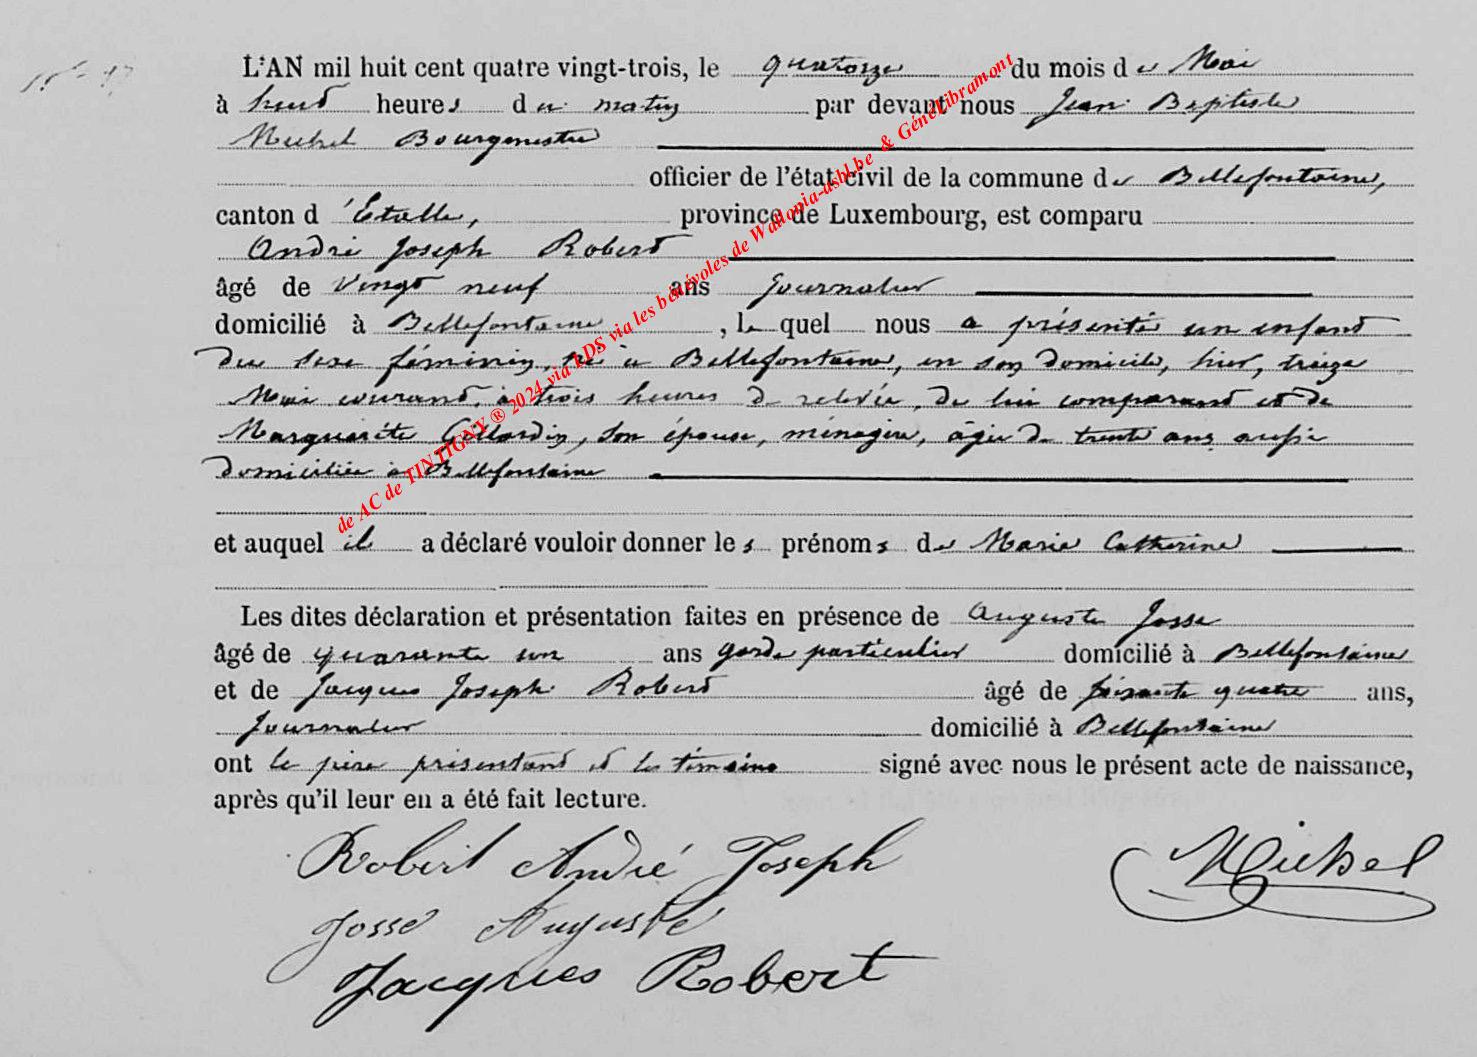 L'AN mil huit cent quatre vingt-trois, le quatorze du mois de Mai
à huit heures du matin par devant nous Jean Baptiste
Michel Bourgmestre
officier de l'état civil de la commune de Bellefontaine,
canton d'Etalle, province de Luxembourg, est comparu
André Joseph Robert
âgé de vingt neuf ans journalier
domicilié à Bellefontaine, le quel nous a présenté un enfant
du sexe féminin, né à Bellefontaine, en son domicile, hier, treize
Mai courant, à trois heures de relevée, de lui comparant et de
Marguerite son épouse, ménagère, âgée de trente ans aussi
domiciliée à Bellefontaine
et auquel il a déclaré vouloir donner les prénoms de Marie Catherine
Les dites déclaration et présentation faites en présence de Auguste Josse
âgé de quarante un ans garde particulier domicilié à Bellefontaine
et de Jacques Joseph Robert âgé de soixante quatre ans,
journalier domicilié à Bellefontaine
ont le père présentant et les témoins signé avec nous le présent acte de naissance,
après qu'il leur en a été fait lecture.
Robert André Joseph Michel
Josse Auguste
Jacques Robert
de AC de TINTIGNY ® 2024 via LDS via les bénévoles de Wallonia-asbl.be & GénéLibramont